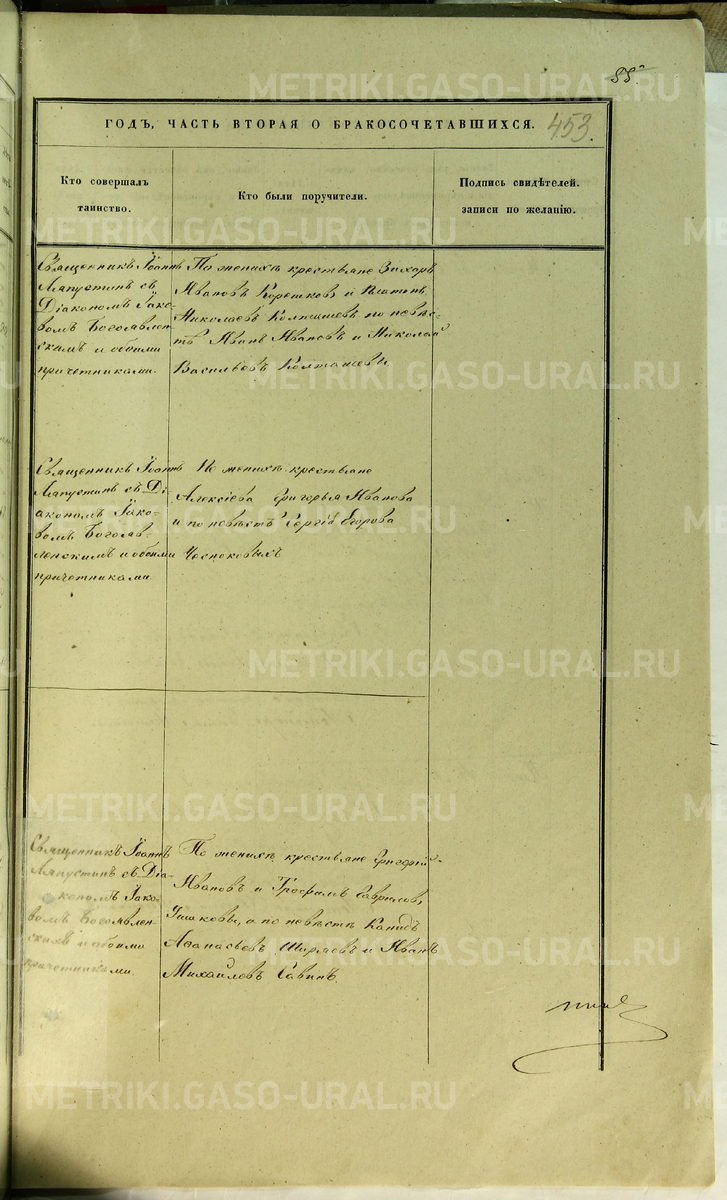 55
ГОДЪ, ЧАСТЬ ВТОРАЯ О БРАКОСОЧЕТАВШИХСЯ.
453
Кто совершалъ
таинство.
Кто были поручители.
Подпись свидѣтелей.
записи по желанію.
Священникъ Іоаннъ
Ляпустинъ съ
Діакономъ Іако-
вомъ Богоявлен-
скимъ и обоими
причетниками.
По женихѣ крестьяне Захаръ
Ивановъ и
Николаевъ по невѣс-
тѣ Иванъ Ивановъ и Николай
Васильевъ
Священникъ Іоаннъ
Ляпустинъ съ Ді-
акономъ Іако-
вомъ Богояв-
ленскимъ и обоими
причетниками
По женихѣ крестьяне
Алексіева Григорья Иванова
и по невѣстѣ Сергій Егорова
Священникъ Іоаннъ
Ляпустинъ съ Діа-
кономъ Іако-
вомъ Богоявлен-
скимъ и обоими
причетниками
По женихѣ крестьяне Григорій
Ивановъ и Трофимъ Гавриловъ,
Ушковы, а по невѣстѣ
Аѳанасьевъ Ширяевъ и Иванъ
Михайловъ Савинъ.
METRIKI.GASO-URAL.RU